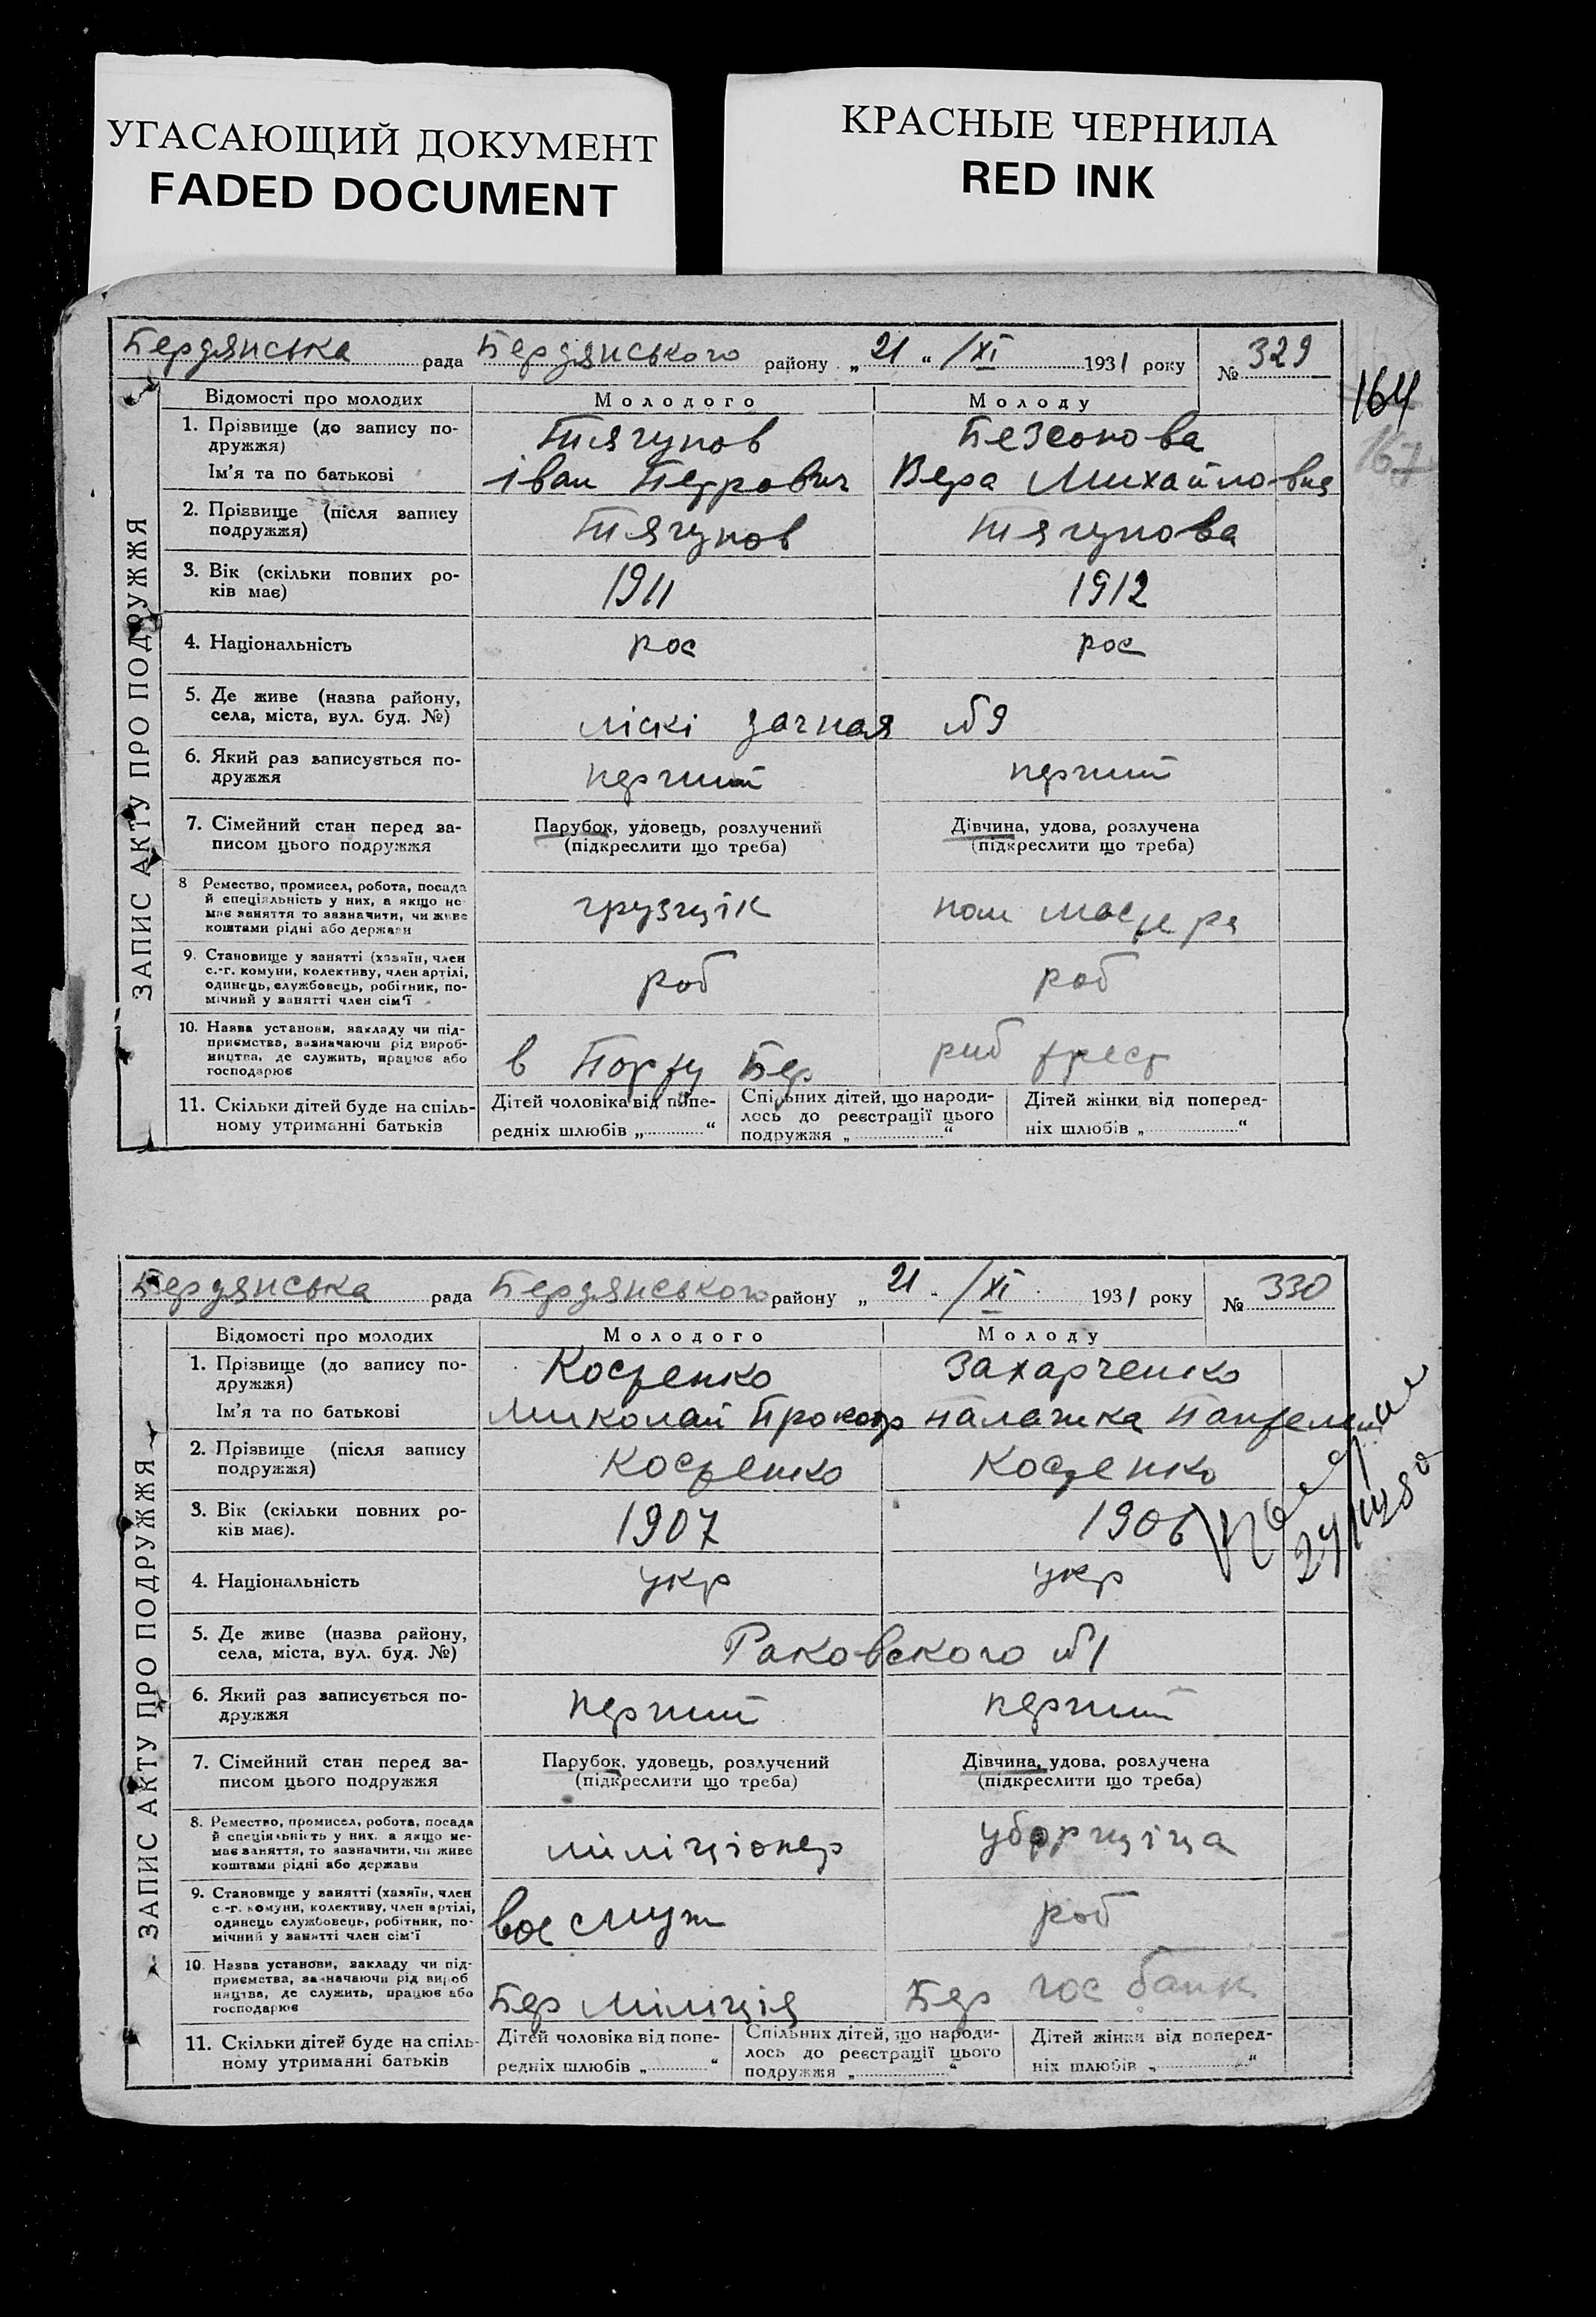 УГАСАЮЩИЙ ДОКУМЕНТ
FADED DOCUMENT
КРАСНЫЕ ЧЕРНИЛА
RED INK
Бердянська рада Бердянського району „21“ /XI 1931 року № 329
164
167
ЗАПИС АКТУ ПРО ПОДРУЖЖЯ
Відомості про молодих Молодого Молоду
1. Прізвище (до запису по-
дружжя) Тягунов Безсонова
Ім'я та по батькові Іван Петрович Вера Михайловна
2. Прізвище (після запису
подружжя) Тягунов Тягунова
3. Вік (скільки повних ро-
ків має) 1911 1912
4. Національність рос рос
5. Де живе (назва району,
села, міста, вул. буд. №) ліскі №9
6. Який раз записується по-
дружжя перший перший
7. Сімейний стан перед за-
писом цього подружжя
Парубок, удовець, розлучений
(підкреслити що треба)
Дівчина, удова, розлучена
(підкреслити що треба)
8 Ремество, промисел, робота, посада
й спеціяльність у них, а якщо не
має заняття то зазначити, чи живе
коштами рідні або держави
грузчік пом мастера
9. Становище у занятті (хазяїн, член
с.-г. комуни, колективу, член артілі,
одинець, службовець, робітник, по-
мічний у занятті член сім'ї
роб роб
10. Назва установи, закладу чи під-
приємства, зазначаючи рід вироб-
ництва, де служить, працює або
господарює
в Порту Бер риб трест
11. Скільки дітей буде на спіль-
ному утриманні батьків
Дітей чоловіка від попе-
редніх шлюбів „ “
Спільних дітей, що народи-
лось до реєстрації цього
подружжя „ “
Дітей жінки від поперед-
ніх шлюбів „ “
Бердянська рада Бердянського району „21. /XI 1931 року № 330
ЗАПИС АКТУ ПРО ПОДРУЖЖЯ
Відомості про молодих Молодого Молоду
1. Прізвище (до запису по-
дружжя) Костенко Захарченко
Ім'я та по батькові Миколай Прокоп Палажка Пантелем
2. Прізвище (після запису
подружжя) Костенко Костенко
3. Вік (скільки повних ро-
ків має). 1907 1906
4. Національність укр укр
5. Де живе (назва району,
села, міста, вул. буд. №) Раковского №1
6. Який раз записується по-
дружжя перший перший
7. Сімейний стан перед за-
писом цього подружжя
Парубок, удовець, розлучений
(підкреслити що треба)
Дівчина, удова, розлучена
(підкреслити що треба)
8. Ремество, промисел, робота, посада
й спеціяльність у них, а якщо не-
має заняття, то зазначити, чи живе
коштами рідні або держави
міліціонер уборщіца
9. Становище у занятті (хазяїн, член
с.-г. комуни, колективу, член артілі,
одинець службовець, робітник, по-
мічний у занятті член сім'ї
вое служ роб
10. Назва установи, закладу чи під-
приємства, зазначаючи рід вироб
ництва, де служить, працює або
господарює
Бер міліція Бер гос банк
11. Скільки дітей буде на спіль-
ному утриманні батьків
Дітей чоловіка від попе-
редніх шлюбів „ “
Спільних дітей, що народи-
лось до реєстрації цього
подружжя „ “
Дітей жінки від поперед-
ніх шлюбів „ “